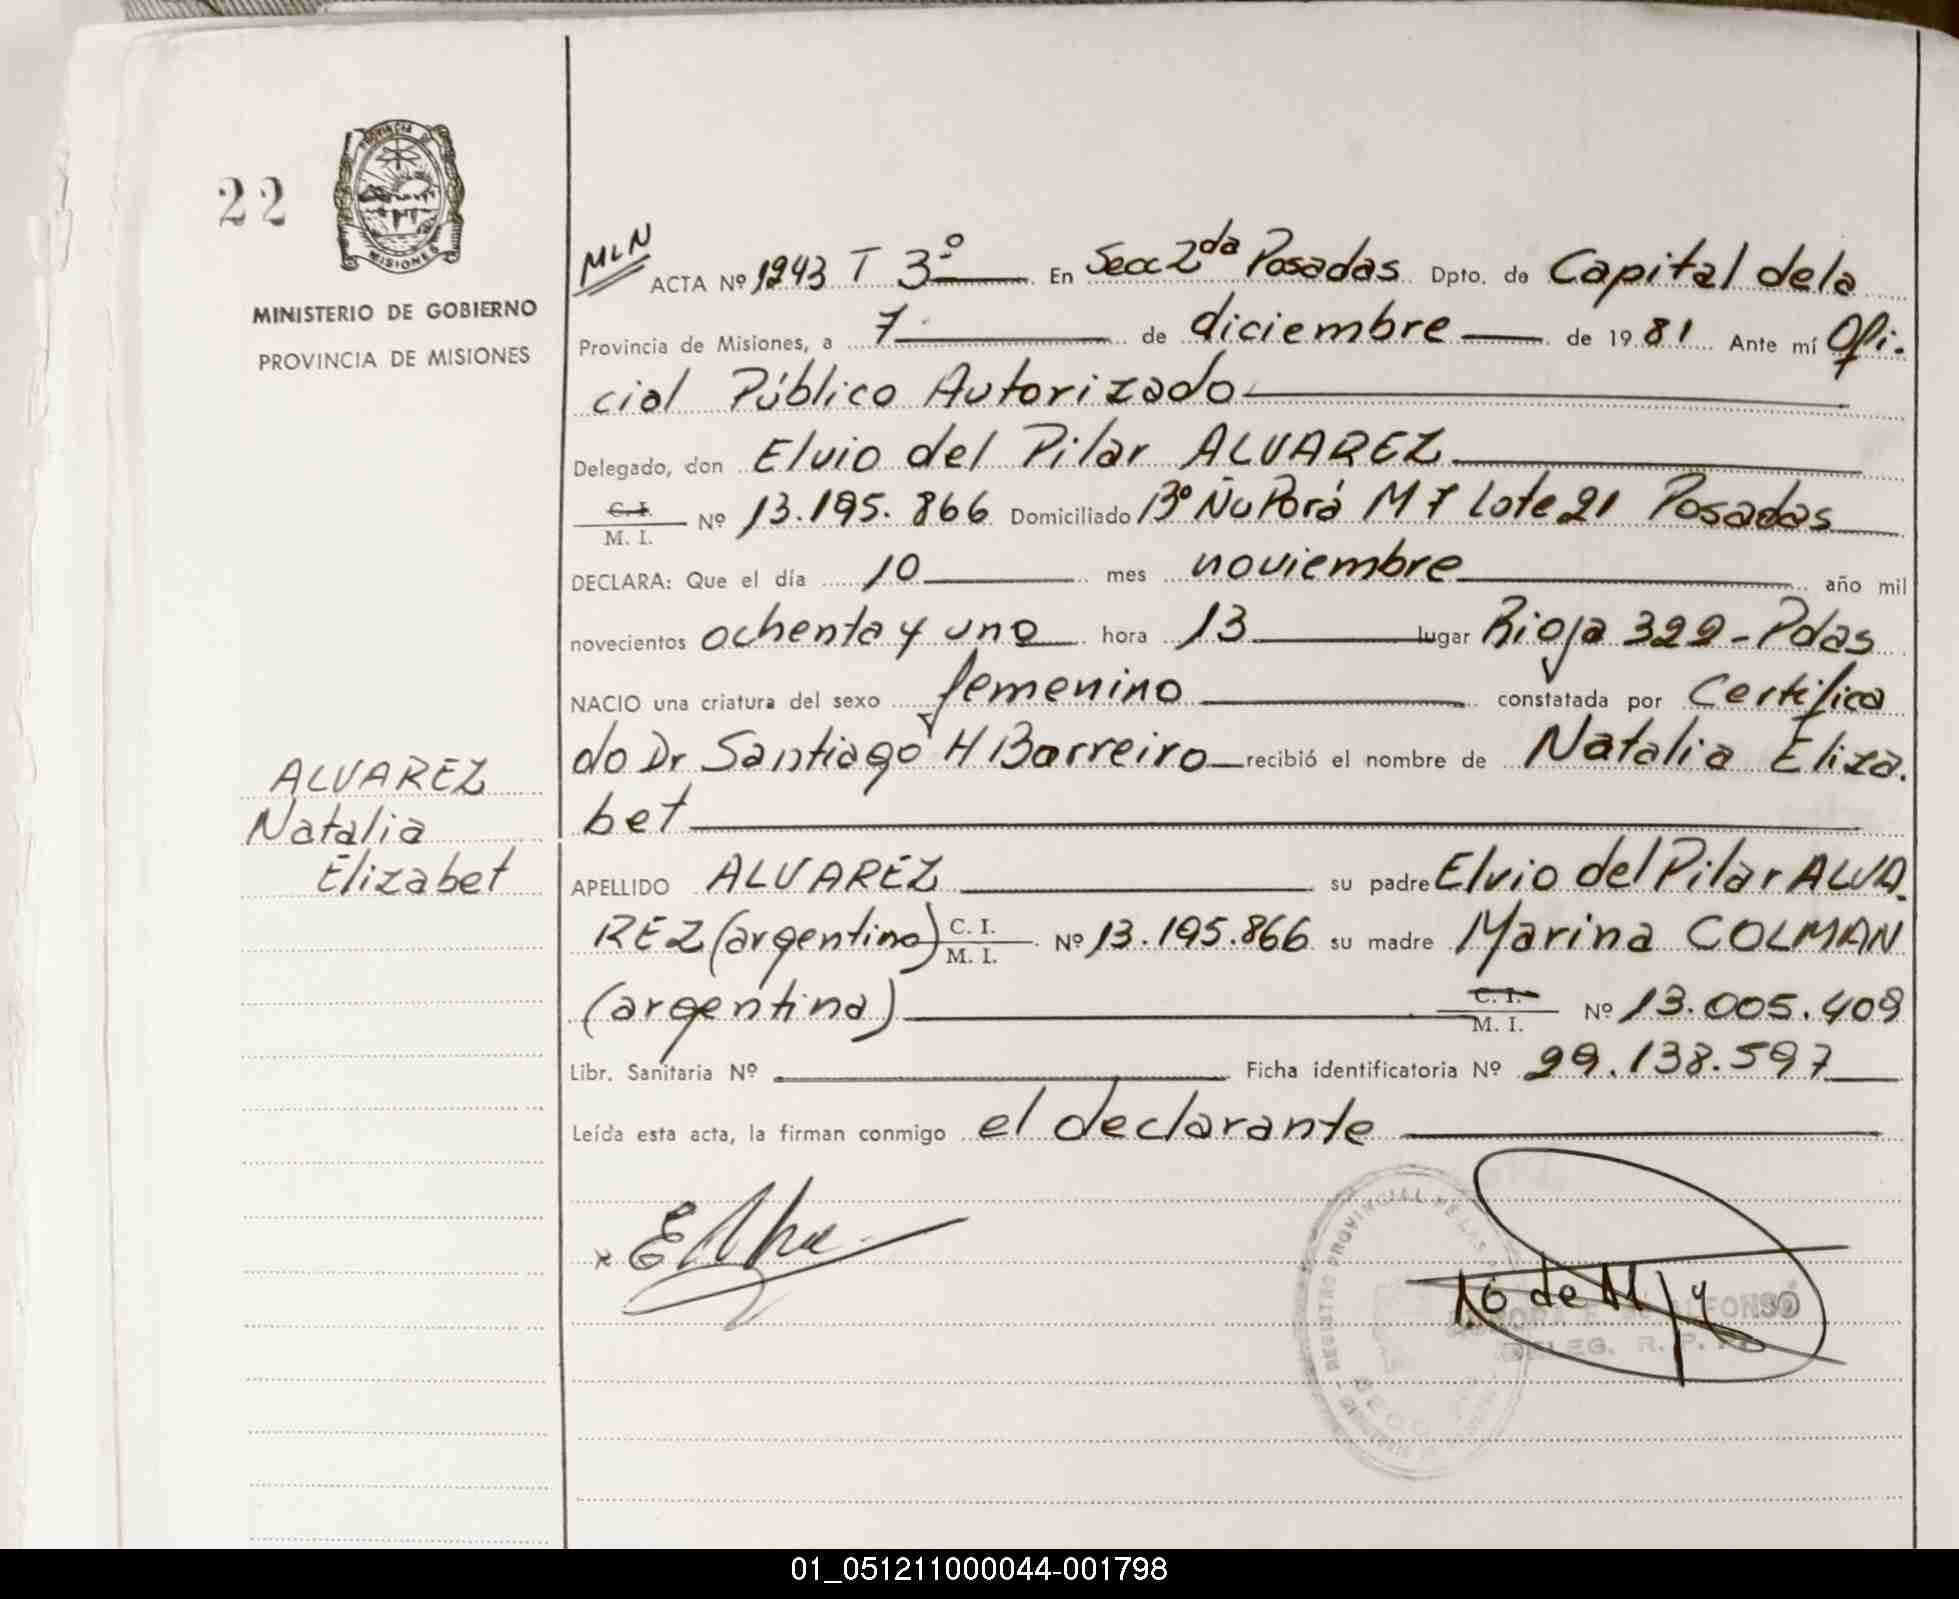 22
PROVINCIA DE
MISIONES
MINISTERIO DE GOBIERNO
PROVINCIA DE MISIONES
ALVAREZ
Natalia
Elizabet
MLN
ACTA Nº 1243 T 3º En Secc 2da Posadas Dpto. de Capital de la
Provincia de Misiones, a 7 de diciembre de 1981 Ante mí Ofi-
cial Público Autorizado
Delegado, don Elvio del Pilar ALVAREZ
C. I.
M. I. Nº 13.195.866 Domiciliado Bº Ñu Porá M 7 lote 21 Posadas
DECLARA: Que el día 10 mes noviembre año mil
novecientos ochenta y uno hora 13 lugar Rioja 322 - Pdas
NACIO una criatura del sexo femenino constatada por Certifica
do Dr Santiago H Barreiro recibió el nombre de Natalia Eliza-
bet
APELLIDO ALVAREZ su padre Elvio del Pilar ALVA-
REZ (argentino) C. I.
M. I. Nº 13.195.866 su madre Marina COLMAN
(argentina) C. I.
M. I. Nº 13.005.409
Libr. Sanitaria Nº Ficha identificatoria Nº 29.138.597
Leída esta acta, la firman conmigo el declarante
REGISTRO PROVINCIAL DE LAS
ALFONSO
DELEG. R. P.
01_051211000044-001798